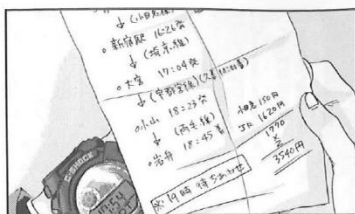 ↓(小田急線)
○新宿駅 16:26発
↓(埼京線)
○大宮 17:04発
↓(宇都宮線)
○小山 18:23発
↓(両毛線)
○岩舟 18:45着
小田急150円
JR 1620円
1770
×2
3540円
※19時待ちあわせ
G-SHOCK